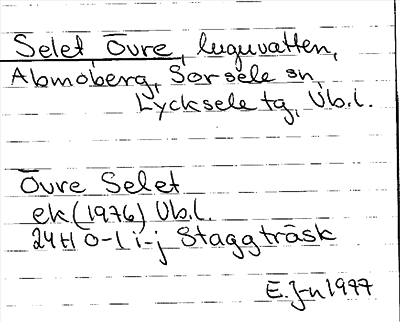 Selet, Övre, lugnvatten,
Abmoberg, Sorsele sn,
Lycksele tg, Vb.l.
Övre Selet
ek (1976) Vb.l.
24H 0-1 i-j Staggträsk
E. J-n 1977